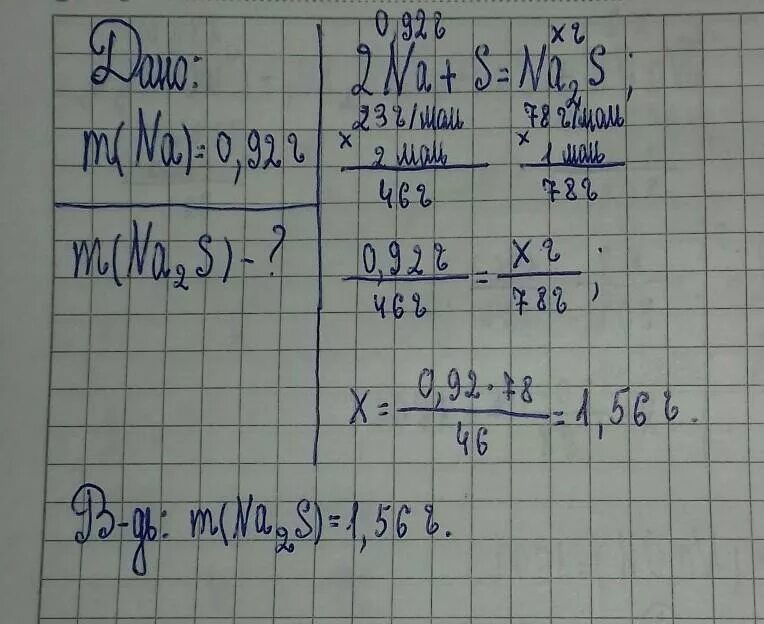 Дано:
m(Na)=0,92г
m(Na₂S)-?
0,92г xг
2Na + S = Na₂S;
23г/моль 78г/моль
× 2 моль × 1 моль
46г 78г
0,92г/46г = Xг/78г;
X = 0,92·78/46 = 1,56г.
В-дь: m(Na₂S)=1,56г.